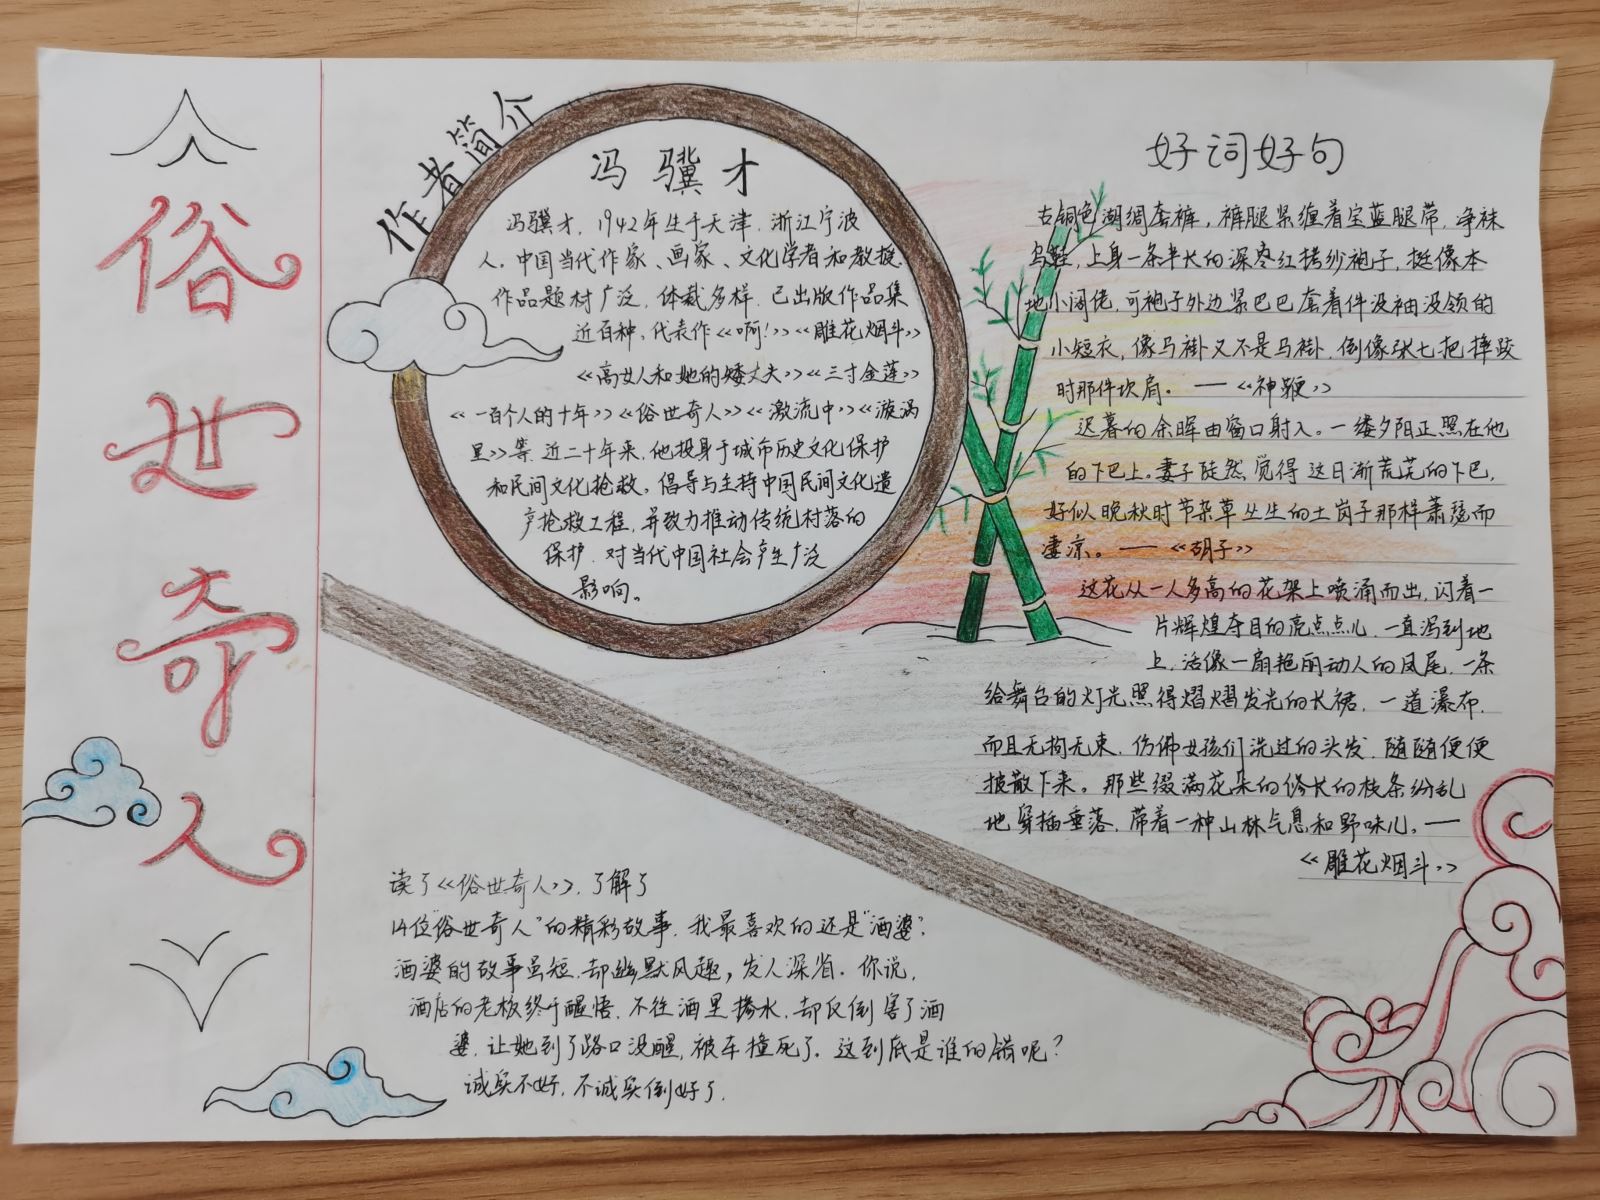 ︽
俗
世
奇
人
︾
作者简介
冯骥才
冯骥才，1942年生于天津，浙江宁波
人。中国当代作家、画家、文化学者和教授。
作品题材广泛，体裁多样，已出版作品集
近百种，代表作《啊！》《雕花烟斗》
《高女人和她的矮丈夫》《三寸金莲》
《一百个人的十年》《俗世奇人》《激流中》《漩涡
里》等，近二十年来，他投身于城市历史文化保护
和民间文化抢救，倡导与主持中国民间文化遗
产抢救工程，并致力推动传统村落的
保护，对当代中国社会产生广泛
影响。
好词好句
古铜色湖绸套裤，裤腿紧缠着宝蓝腿带，净袜
乌鞋，上身一条半长的深枣红拷纱袍子，挺像本
地小阔佬，可袍子外边紧巴巴套着件没袖没领的
小短衣，像马褂又不是马褂，倒像张七把摔跤
时那件坎肩。——《神鞭》
迟暮的余晖由窗口射入。一缕夕阳正照在他
的下巴上。妻子陡然觉得这日渐荒芜的下巴，
好似晚秋时节杂草丛生的土岗子那样萧瑟而
凄凉。——《胡子》
这花从一人多高的花架上喷涌而出，闪着一
片辉煌夺目的亮点点儿，一直泻到地
上，活像一扇艳丽动人的凤尾，一条
给舞台的灯光照得熠熠发光的长裙，一道瀑布，
而且无拘无束，仿佛女孩们洗过的头发，随随便便
披散下来。那些缀满花朵的修长的枝条纷乱
地穿插垂落，带着一种山林气息和野味儿。——
《雕花烟斗》
读了《俗世奇人》，了解了
14位“俗世奇人”的精彩故事，我最喜欢的还是“酒婆”。
酒婆的故事虽短，却幽默风趣，发人深省。你说，
酒店的老板终于醒悟，不往酒里掺水，却反倒害了酒
婆，让她到了路口没醒，被车撞死了。这到底是谁的错呢？
诚实不好，不诚实倒好了。